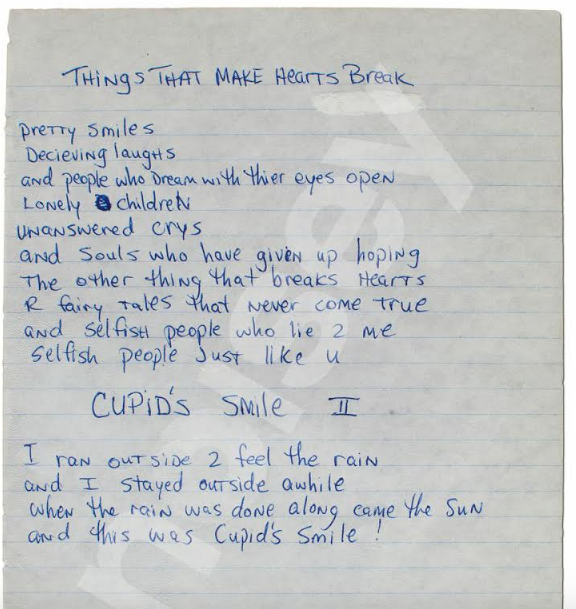 THINGS THAT MAKE HEARTS BREAK
pretty smiles
Decieving laughs
and people who Dream with thier eyes open
Lonely children
unanswered crys
and souls who have given up hoping
The other thing that breaks Hearts
R fairy tales that never come true
and selfish people who lie 2 me
selfish people just like u
CUPID'S SMILE II
I ran outside 2 feel the rain
and I stayed outside awhile
when the rain was done along came the sun
and this was Cupid's smile !